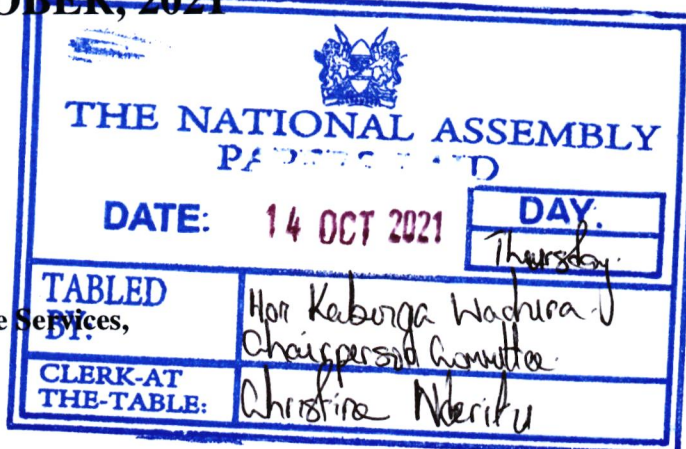 OBER, 2021
THE NATIONAL ASSEMBLY
DATE: 14 OCT 2021
DAY.
Thursday.
TABLED BY:
Hon Kabinga Wachira
Chairperson Committee
e Services,
CLERK-AT THE-TABLE:
Christine Nderitu